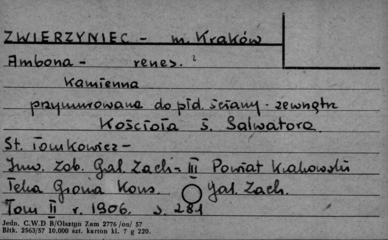 ZWIERZYNIEC - m. Kraków
Ambona - renes. ?
Kamienna
przymurowana do płd. ściany - zewnątrz
Kościoła ś. Salwatora.
St. Tomkowicz -
Inw. Zab. Gal. Zach - III Powiat Krakowski
Teka Grona Kons. Gal. Zach.
Tom II r. 1906. s. 281
Jedn. C.W.D B/Olsztyn Zam 2776 /on/ 57
Bltk. 2563/57 10.000 szt. karton kl. 7 g 220.